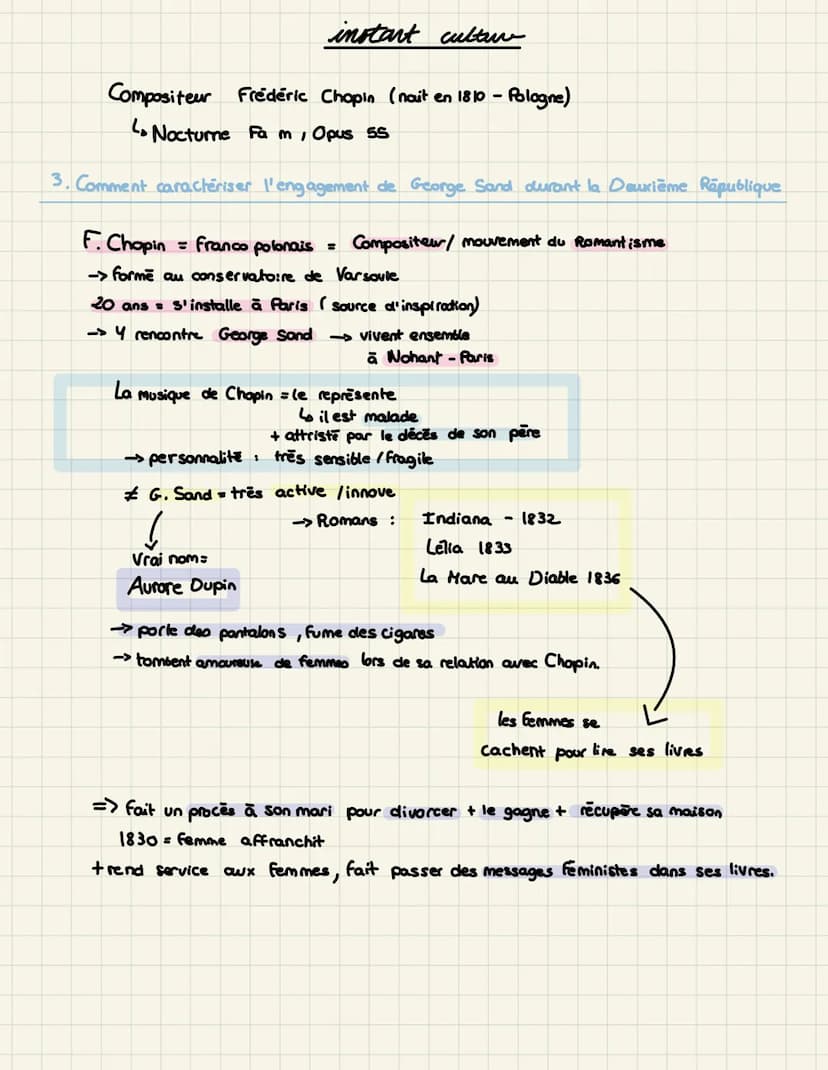 instant culture
Compositeur Frédéric Chopin (nait en 1810 - Pologne)
↳ Nocturne Fa m, Opus 55
3. Comment caractériser l'engagement de George Sand durant la Deuxième République
F. Chopin = franco polonais = Compositeur / mouvement du Romantisme
-> formé au conservatoire de Varsovie
20 ans = s'installe à Paris (source d'inspiration)
-> y rencontre George Sand -> vivent ensemble
à Nohant - Paris
La musique de Chopin = le représente
↳ il est malade
+ attristé par le décès de son père
-> personnalité : très sensible / fragile
≠ G. Sand = très active / innove
-> Romans : Indiana - 1832
Lélia 1833
La Mare au Diable 1836
Vrai nom =
Aurore Dupin
-> porte des pantalons, fume des cigares
-> tombent amoureuse de femmes lors de sa relation avec Chopin.
les femmes se
cachent pour lire ses livres
=> fait un procès à son mari pour divorcer + le gagne + récupère sa maison
1830 = femme affranchit
+ rend service aux femmes, fait passer des messages féministes dans ses livres.